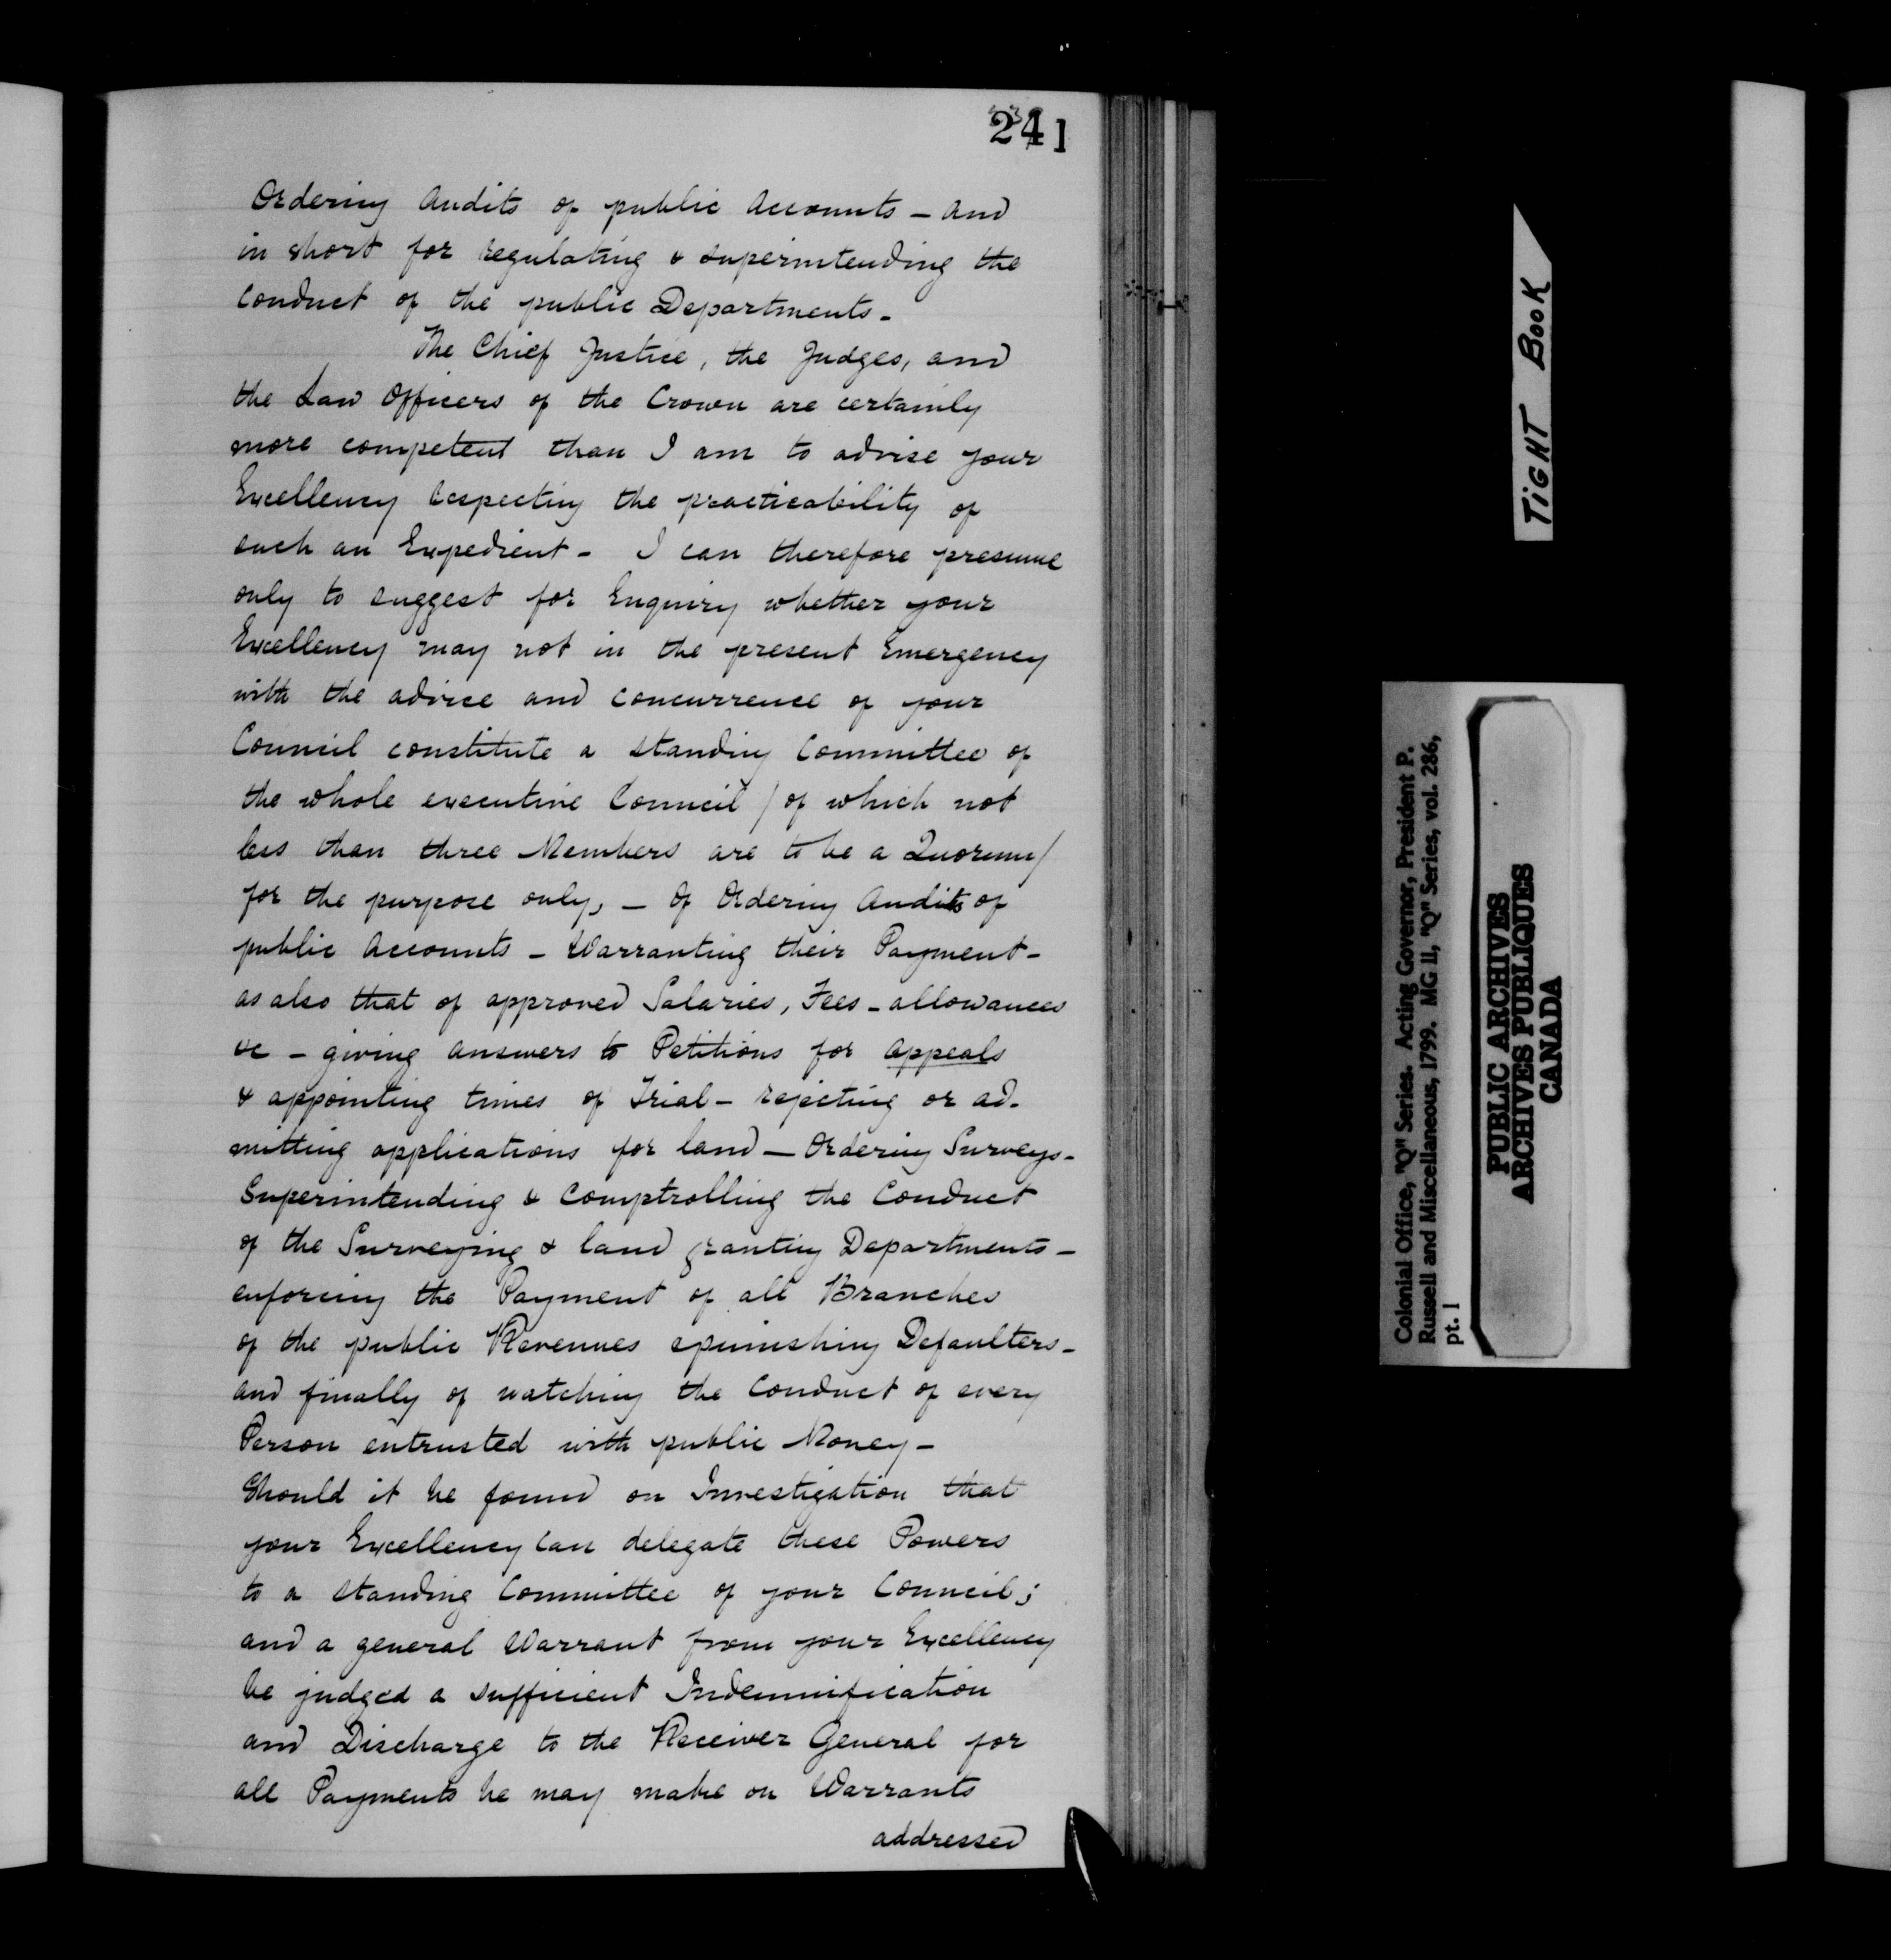 241
Ordering Audits of public Accounts – And
in short for regulating & superintending the
Conduct of the public Departments –
The Chief Justice, the Judges, and
the Law Officers of the Crown are certainly
more competent than I am to advise your
Excellency respecting the practicability of
such an Expedient – I can therefore presume
only to suggest for Enquiry whether your
Excellency may not in the present Emergency
with the advice and concurrence of your
Council constitute a standing Committee of
the whole executive Council / of which not
less than three Members are to be a Quorum /
for the purpose only, – Of Ordering Audits of
public Accounts – Warranting their Payment –
as also that of approved Salaries, Fees – allowances
&c – giving answers to Petitions for appeals
& appointing times of Trial – rejecting or ad-
mitting applications for land – Ordering Surveys –
Superintending & Comptrolling the Conduct
of the Surveying & land granting Departments –
enforcing the Payment of all Branches
of the public Revenues & punishing Defaulters –
and finally of watching the Conduct of every
Person entrusted with public Money –
Should it be found on Investigation that
your Excellency can delegate these Powers
to a standing Committee of your Council;
and a general Warrant from your Excellency
be judged a sufficient Indemnification
and Discharge to the Receiver General for
all Payments he may make on Warrants
addressed
TIGHT BOOK
Colonial Office, "Q" Series. Acting Governor, President P.
Russell and Miscellaneous, 1799. MG 11, "Q" Series, vol. 286,
pt. 1
PUBLIC ARCHIVES
ARCHIVES PUBLIQUES
CANADA